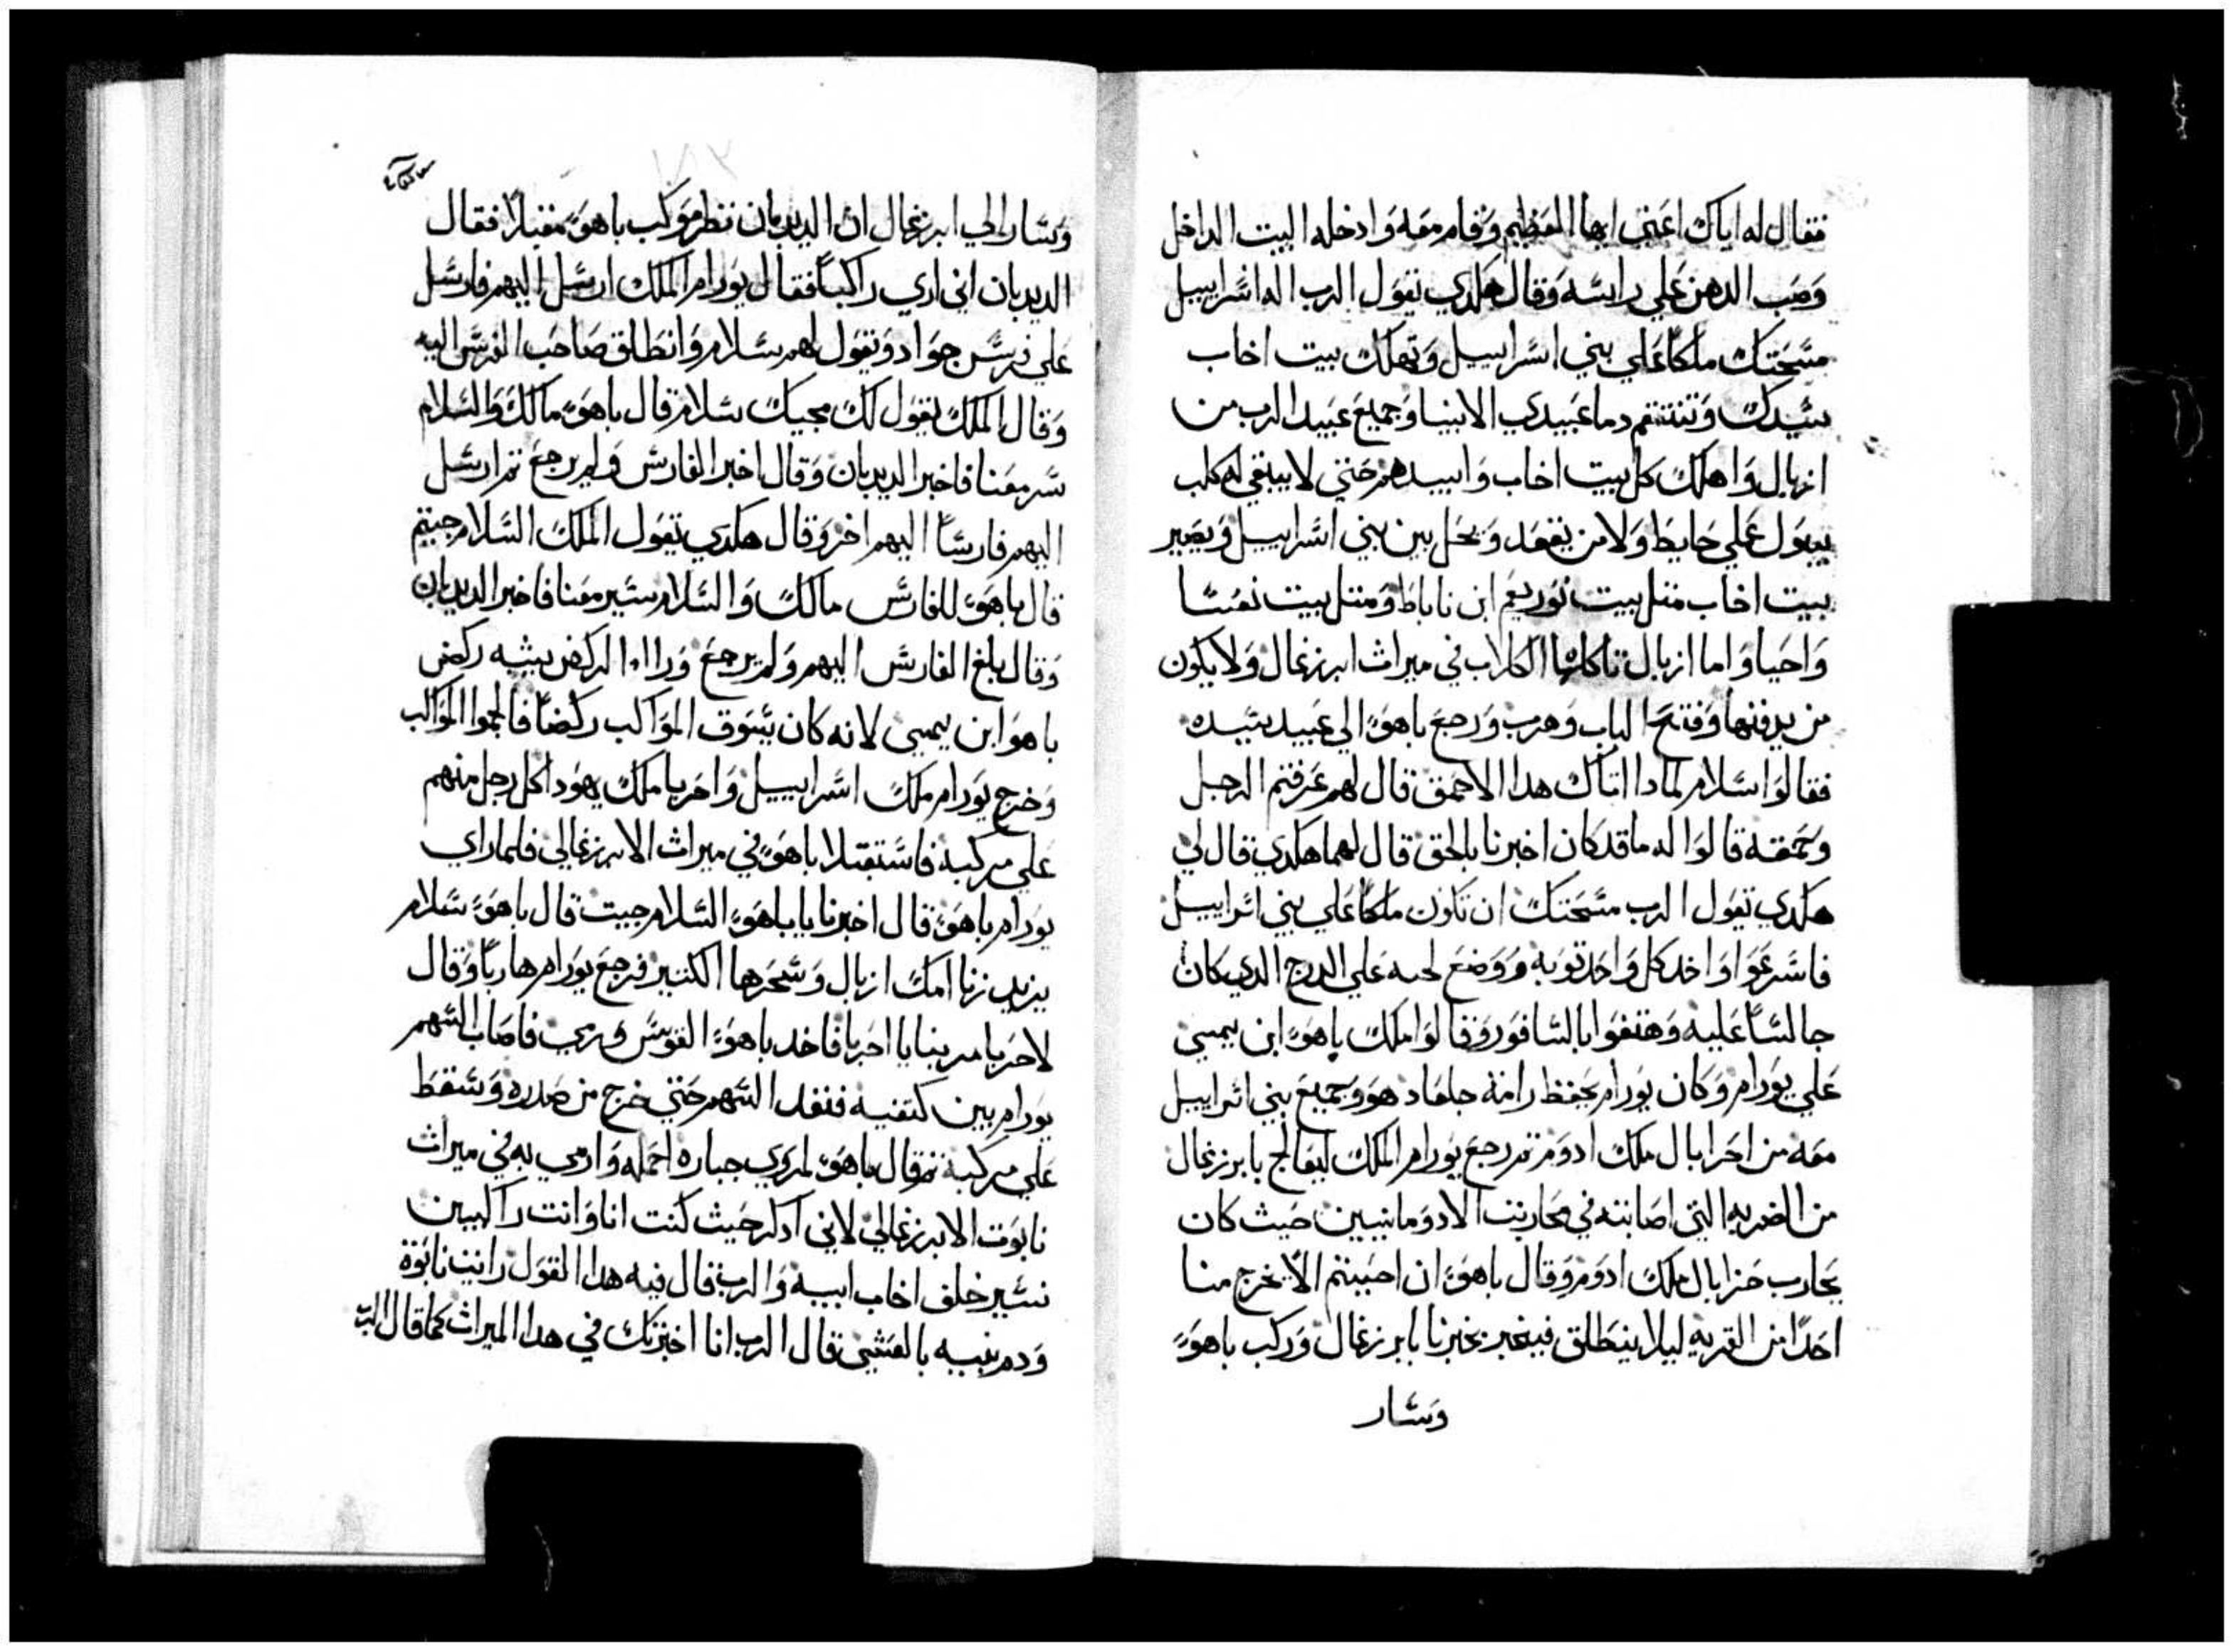 فقال له اياك اعني ايها العظيم وقام معه وادخله البيت الداخل
وصب الدهن علي راسه وقال هكدي تقول الرب اله اسراييل
مسحتك ملكا علي بني اسراييل وتهلك بيت اخاب
سيدك وتنتقم دما عبيدي الانبيا وجميع عبيد الرب من
ازبال واهلك كل بيت اخاب وابيدهم حتي لا يبقي له كلب
يبول علي حايط ولا من يقعد ويحل بين بني اسراييل ويصير
بيت اخاب متل بيت نوربعم ابن ناباط ومتل بيت نعسا
واحيا واما ازبال تاكلها الكلاب في ميراث ايرزغال ولا يكون
من يدفنها وفتح الباب وهرب ورجع ياهو الي عبيد سيده
فقالوا سلام لمادا اتاك هدا الاحمق قال لهم عرفتم الرجل
وحمقه قالوا له ما قد كان اخبرنا بالحق قال لهما هكدي قال لي
هكدي تقول الرب مسحتك ان تكون ملكا علي بني اسراييل
فاسرعوا واخد كل واحد توبه ووضع لحبه علي الدرج الدي كان
جالسا عليه وهتفوا بالسافور وقالوا ملك ياهو ابن يمسي
علي يورام وكان يورام يحفظ رامة جلعاد هو وجميع بني اسراييل
معه من احرابال ملك ادوم تم رجع يورام الملك ليعالج بايرزغال
من الضربه التي اصابته في محاربت الادومانيين حيث كان
يحارب حزابال ملك ادوم وقال ياهو ان احببتم الا يخرج منا
احدا من القريه ليلا ينطلق فيخبر بخبرنا بايرزغال وركب ياهو
وسار
وسار الي ايرزغال ان الديدبان نظر موكب ياهو مقبلا فقال
الديدبان اني اري راكبا فقال يورام الملك ارسل اليهم فارسل
علي فرس جواد وتقول لهم سلام وانطلق صاحب الفرس اليه
وقال الملك يقول لك مجيك سلام قال ياهو مالك والسلام
سر معنا فاخبر الديدبان وقال اخبر الفارس ولم يرجع تم ارسل
اليهم فارسا اليهم اخر وقال هكدي تقول الملك السلام جيتم
قال ياهو للفارس مالك والسلام سير معنا فاخبر الديدبان
وقال بلغ الفارس اليهم ولم يرجع وراا الركض يشبه ركض
ياهو ابن يمسي لانه كان يسوق المواكب ركضا فالجموا المواكب
وخرج يورام ملك اسراييل واحزيا ملك يهودا كل رجل منهم
علي مركبه فاستقبلا ياهو في ميراث الايرزغالي فلما راي
يورام ياهو قال اخبرنا يا ياهو السلام جيت قال ياهو سلام
يزيد زنا امك ازبال وسحرها الكتير فرجع يورام هاربا وقال
لاحزيا مر بنا يا احزيا فاخد ياهو القوس ورمي فاصاب السهم
يورام بين كتفيه فنفد السهم حتي خرج من صدره وسقط
علي مركبه تم قال ياهو لمروي جباره احمله وارمي به في ميراث
نابوت الايرزغالي لاني ادكر حيث كنت انا وانت راكبين
نسير خلف اخاب ابيه والرب قال فيه هدا القول رايت نابوة
ودم بنيه بالعشي قال الرب انا اخبرتك في هدا الميراث كما قال الرب